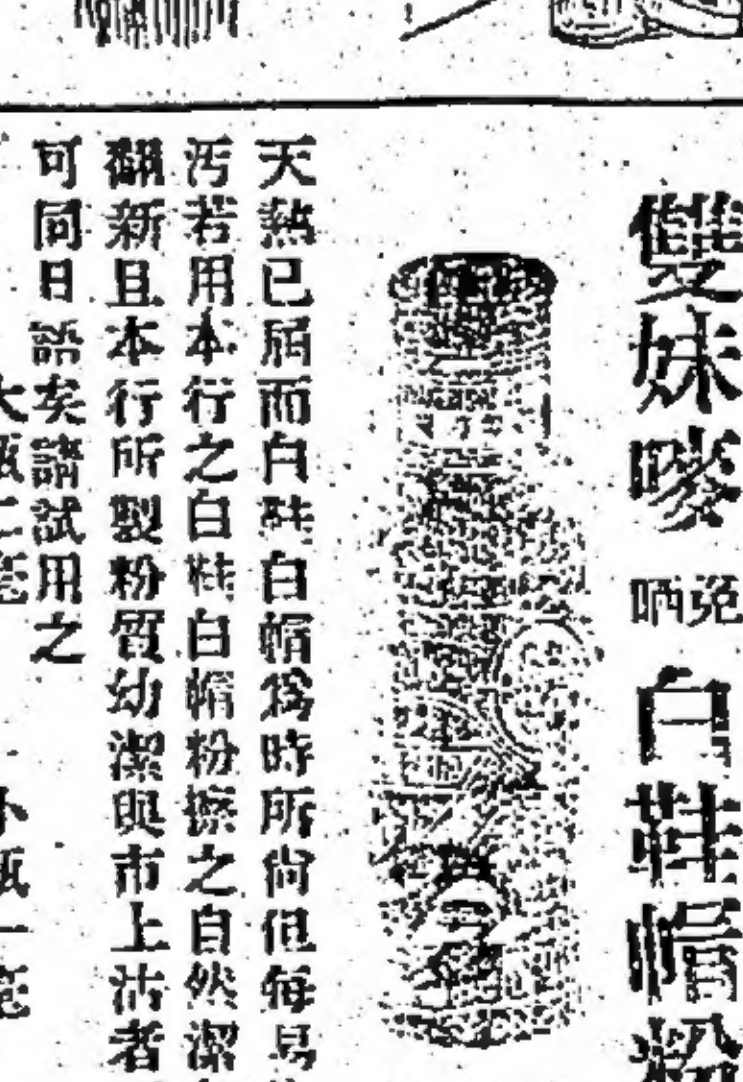 雙妹嘜 免晒 白鞋帽粉
天熱已屆而白鞋白帽爲時所尙但每易
汚若用本行之白鞋白帽粉擦之自然潔
翻新且本行所製粉質幼潔與市上沽者
可同日語矣請試用之
大瓶二毫 小瓶一毫